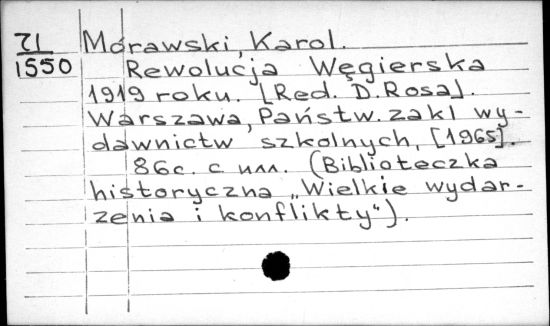 ZI Morawski, Karol.
1550 Rewolucja Węgierska
1919 roku. [Red. D. Rosa].
Warszawa, Państw. zakł wy-
dawnictw szkolnych, [1965].
86с. с илл. (Biblioteczka
historyczna „Wielkie wydar-
zenia i konflikty").